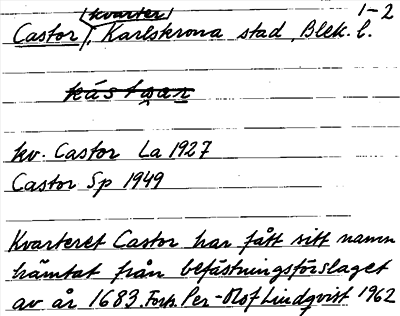 kvarter 1-2
Castor, Karlskrona stad, Blek. l.
kástạṛ
kv. Castor La 1927
Castor Sp 1949
Kvarteret Castor har fått sitt namn
hämtat från befästningsförslaget
av år 1683. Forts. Per-Olof Lindqvist 1962